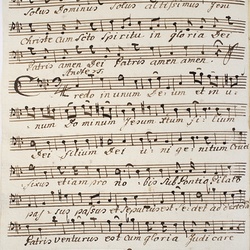 Solus Dominus Solus altissimus Jesu
Christe Cum Sto Spiritu in gloria Dei
Patris amen Dei Patris amen amen.
Credo in unum Deum et in u
num Dominum Jesum Xtum filium
Dei filium Dei uni genitum Cruci
fixus etiam pro nobis sub Pontio Pilato
passus passus et Sepultus est
Patris venturus est Cum gloria Judicare